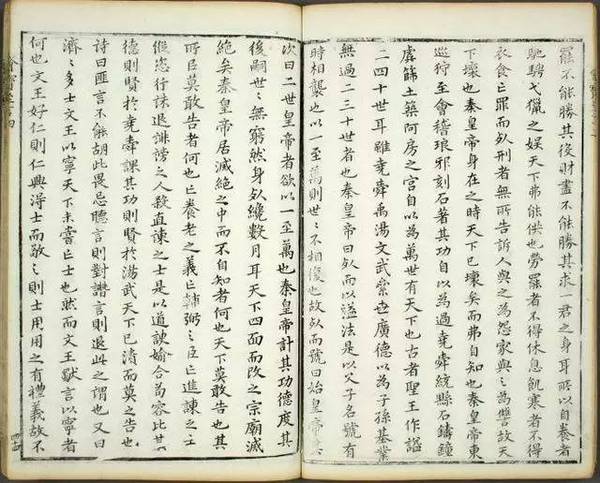 罷不能勝其役財盡不能勝其求一君之身耳所以自養者
馳騁弋獵之娛天下弗能供也勞罷者不得休息飢寒者不得
衣食亡罪而死刑者無所告訴人與之為怨家與之為讐故天
下壞也秦皇帝身在之時天下已壞矣而弗自知也秦皇帝東
巡狩至會稽琅邪刻石著其功自以為過堯舜統縣石鑄鐘
虡篩土築阿房之宮自以為萬世有天下也古者聖王作謚
三四十世耳雖堯舜禹湯文武絫世廣德以為子孫基業
無過二三十世者也秦皇帝曰死而以謚法是以父子名號有
時相襲也以一至萬則世々不相復也故死而號曰始皇帝其
次曰二世皇帝者欲以一至萬也秦皇帝計其功德度其
後嗣世々無窮然身死纔數月耳天下四面而攻之宗廟滅
絕矣秦皇帝居滅絕之中而不自知者何也天下莫敢告也其
所以莫敢告者何也亡養老之義亡輔弼之臣亡進諫之士
縱恣行誅退誹謗之人殺直諫之士是以道諛媮合苟容比其
德則賢於堯舜課其功則賢於湯武天下已潰而莫之告也
詩曰匪言不能胡此畏忌聽言則對譖言則退此之謂也又曰
濟々多士文王以寧天下未嘗亡士也然而文王獨言以寧者
何也文王好仁則仁興得士而敬之則士用用之有禮義故不